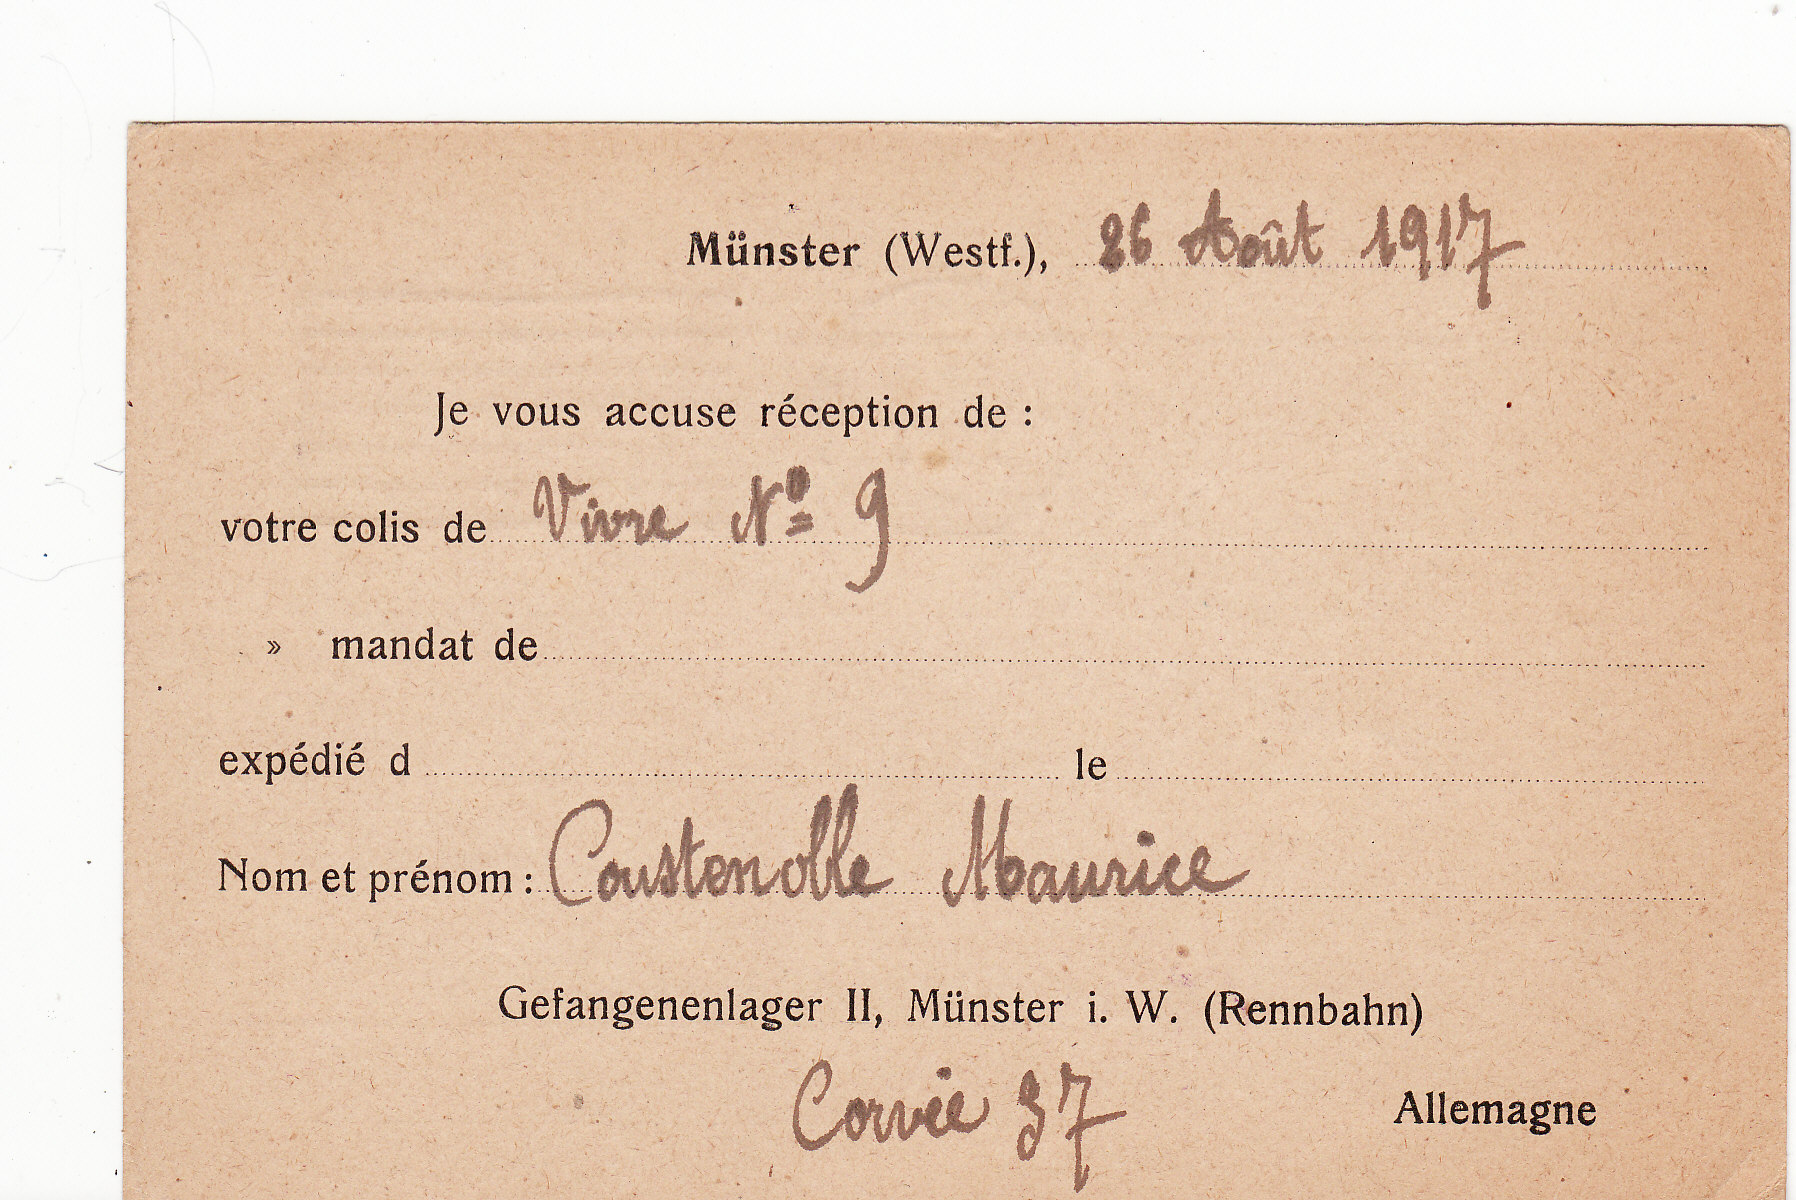 Münster (Westf.), 26 Août 1917
Je vous accuse réception de :
votre colis de Vivre Nº 9
» mandat de
expédié d le
Nom et prénom : Coustenoble Maurice
Gefangenenlager II, Münster i. W. (Rennbahn)
Corvée 37
Allemagne